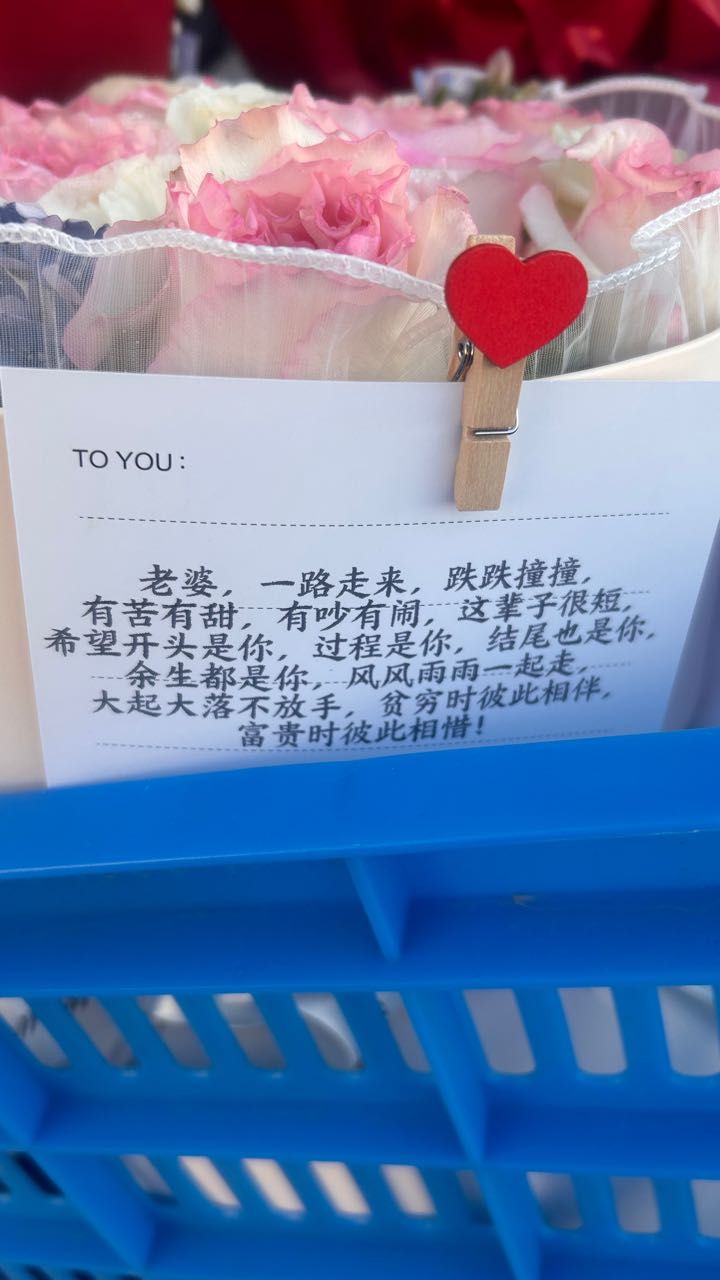 TO YOU：
老婆，一路走来，跌跌撞撞，
有苦有甜，有吵有闹，这辈子很短，
希望开头是你，过程是你，结尾也是你，
余生都是你，风风雨雨一起走，
大起大落不放手，贫穷时彼此相伴，
富贵时彼此相惜！